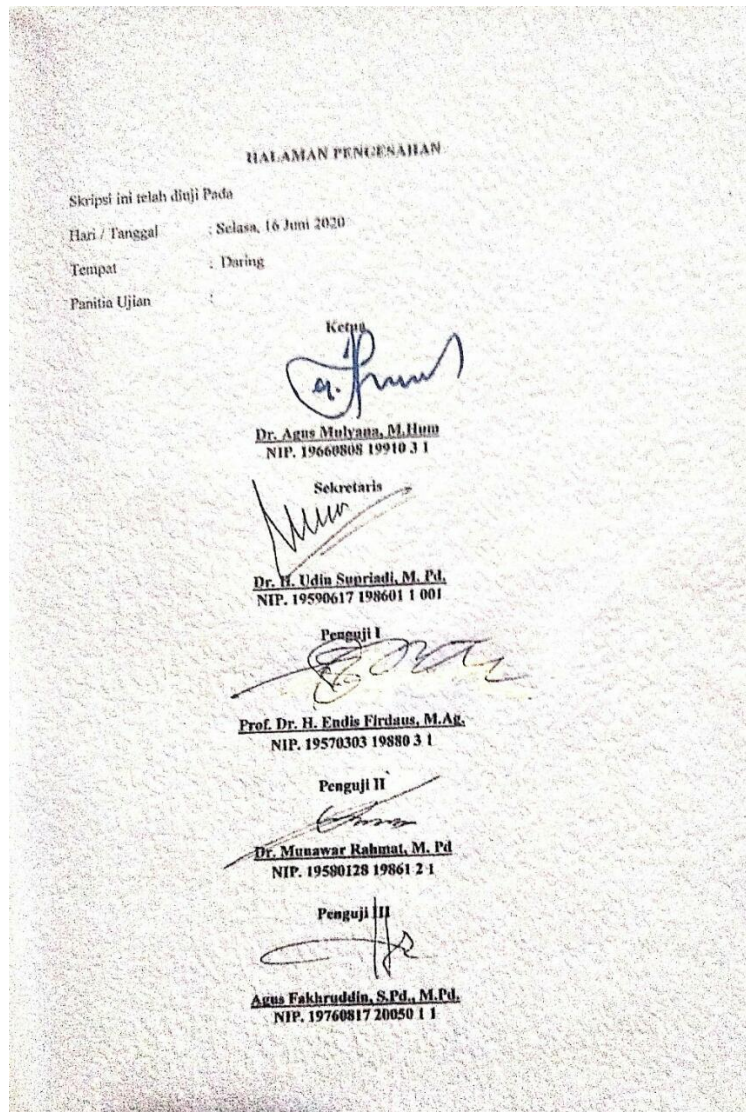 HALAMAN PENGESAHAN
Skripsi ini telah diuji Pada
Hari / Tanggal : Selasa, 16 Juni 2020
Tempat : Daring
Panitia Ujian :
Ketua
Dr. Agus Mulyana, M.Hum
NIP. 19660808 19910 3 1
Sekretaris
Dr. H. Udin Supriadi, M. Pd.
NIP. 19590617 198601 1 001
Penguji I
Prof. Dr. H. Endis Firdaus, M.Ag.
NIP. 19570303 19880 3 1
Penguji II
Dr. Munawar Rahmat, M. Pd
NIP. 19580128 19861 2 1
Penguji III
Agus Fakhruddin, S.Pd., M.Pd.
NIP. 19760817 20050 1 1